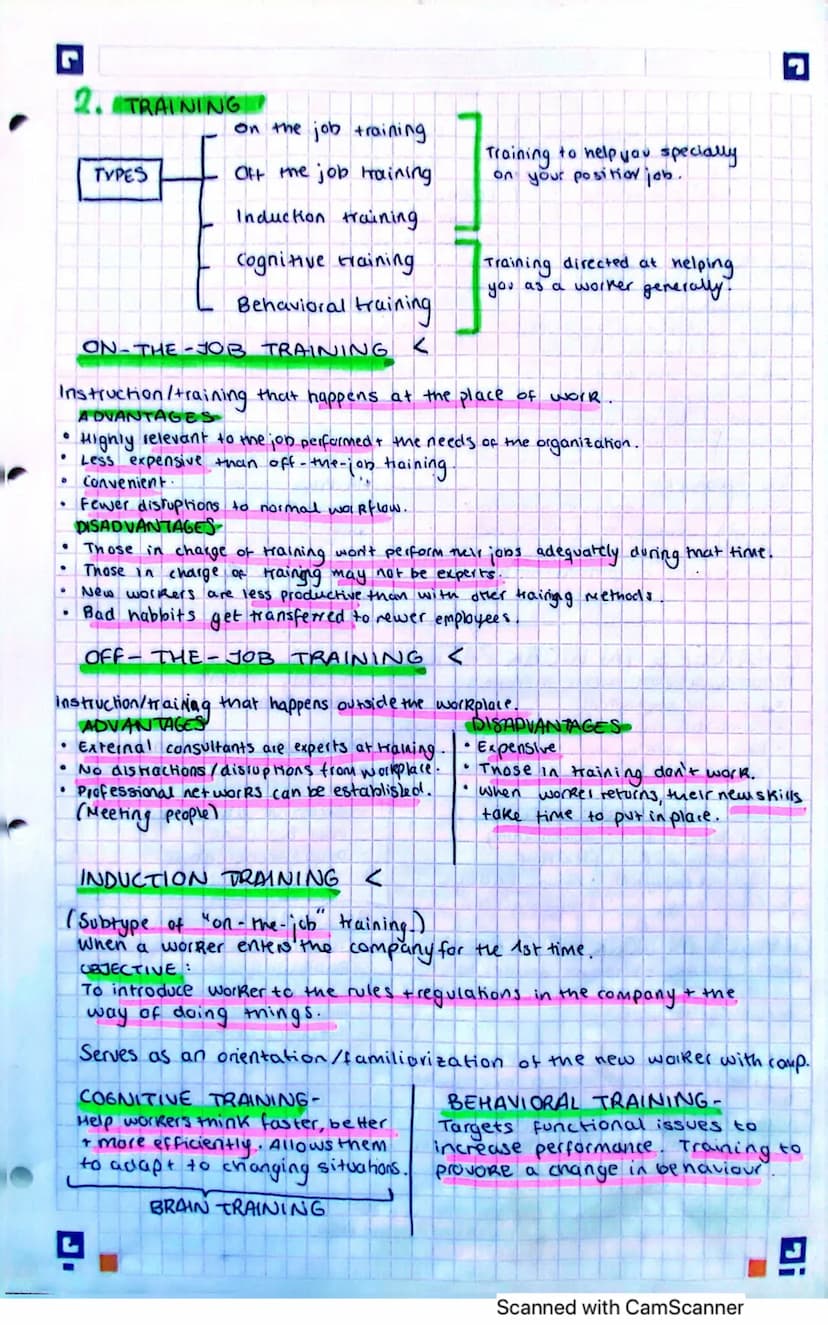 2. TRAINING
TYPES
On the job training
Off the job training
Induction training
Cognitive training
Behavioral training
Training to help you specially
on your position/job.
Training directed at helping
you as a worker generally.
ON-THE-JOB TRAINING <
Instruction/training that happens at the place of work.
ADVANTAGES
• Highly relevant to the job performed + the needs of the organization.
• Less expensive than off-the-job training.
• Convenient.
• Fewer disruptions to normal workflow.
DISADVANTAGES
• Those in charge of training won't perform their jobs adequately during that time.
• Those in charge of training may not be experts.
• New workers are less productive than with other training methods.
• Bad habbits get transferred to newer employees.
OFF-THE-JOB TRAINING <
Instruction/training that happens outside the workplace.
ADVANTAGES
• External consultants are experts at training.
• No distractions/disruptions from workplace.
• Professional networks can be established.
(Meeting people)
DISADVANTAGES
• Expensive
• Those in training don't work.
• When worker returns, their new skills
take time to put in place.
INDUCTION TRAINING <
(Subtype of "on-the-job" training.)
When a worker enters the company for the 1st time.
OBJECTIVE:
To introduce worker to the rules + regulations in the company + the
way of doing things.
Serves as an orientation/familiorization of the new worker with comp.
COGNITIVE TRAINING-
Help workers think faster, better
+ more efficiently. Allows them
to adapt to changing situations.
BRAIN TRAINING
BEHAVIORAL TRAINING-
Targets functional issues to
increase performance. Training to
provoke a change in behaviour.
Scanned with CamScanner